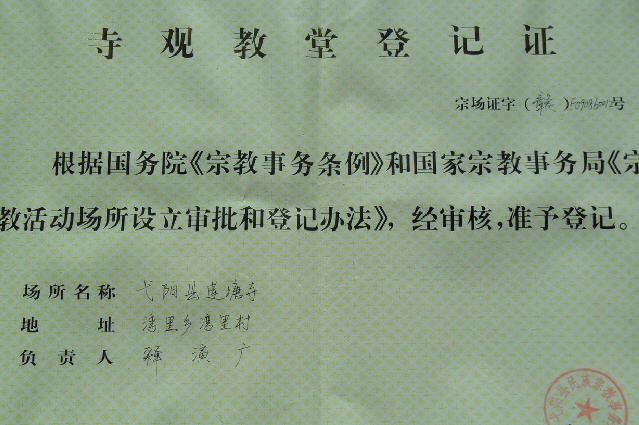 寺观教堂登记证
宗场证字(赣)F090360012号
根据国务院《宗教事务条例》和国家宗教事务局《宗
教活动场所设立审批和登记办法》,经审核,准予登记。
场所名称 弋阳县莲塘寺
地址 湾里乡湾里村
负责人 释演广
弋阳县民族宗教事务